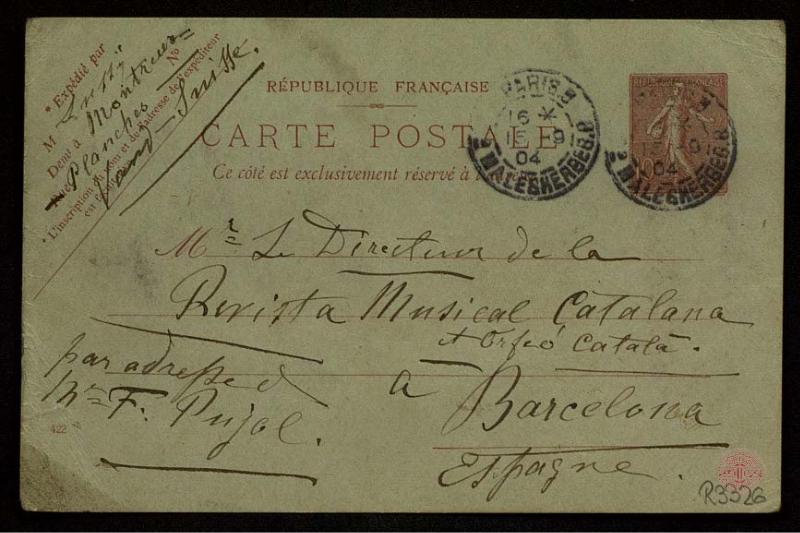 * Expédié par
M Lussy
Demt à Montreux=
Rue Planches No
* L'inscription du nom et de l'adresse de l'expéditeur
est
Vaud - Suisse.
RÉPUBLIQUE FRANÇAISE
CARTE POSTALE
Ce côté est exclusivement réservé à
PARIS
16 *
15 9
04
MALESHERBES
04
MALESHERBES
10
Mr Le Directeur de la
Revista Musical Catalana
Orfeó Català.
par adresse d
Mr F. Pujol.
à
Barcelona
Espagne.
422
R3326